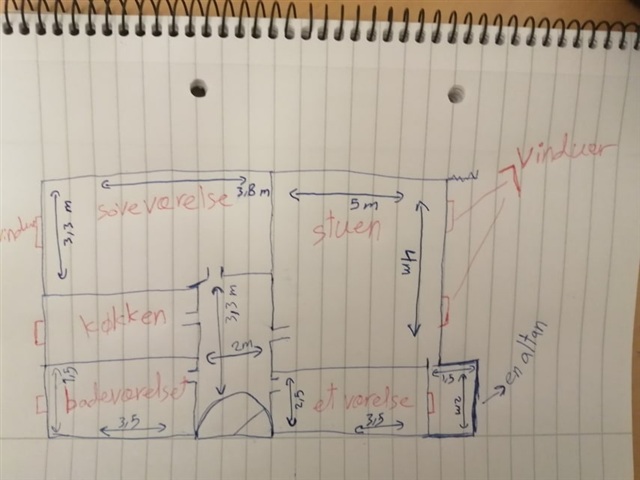 vinduer
soveværelse
3,8 m
3,3 m
5 m
stuen
4m
køkken
3,3 m
2m
badeværelset
1,5
3,5
2,5
et værelse
3,5
1,5
2m
en altan